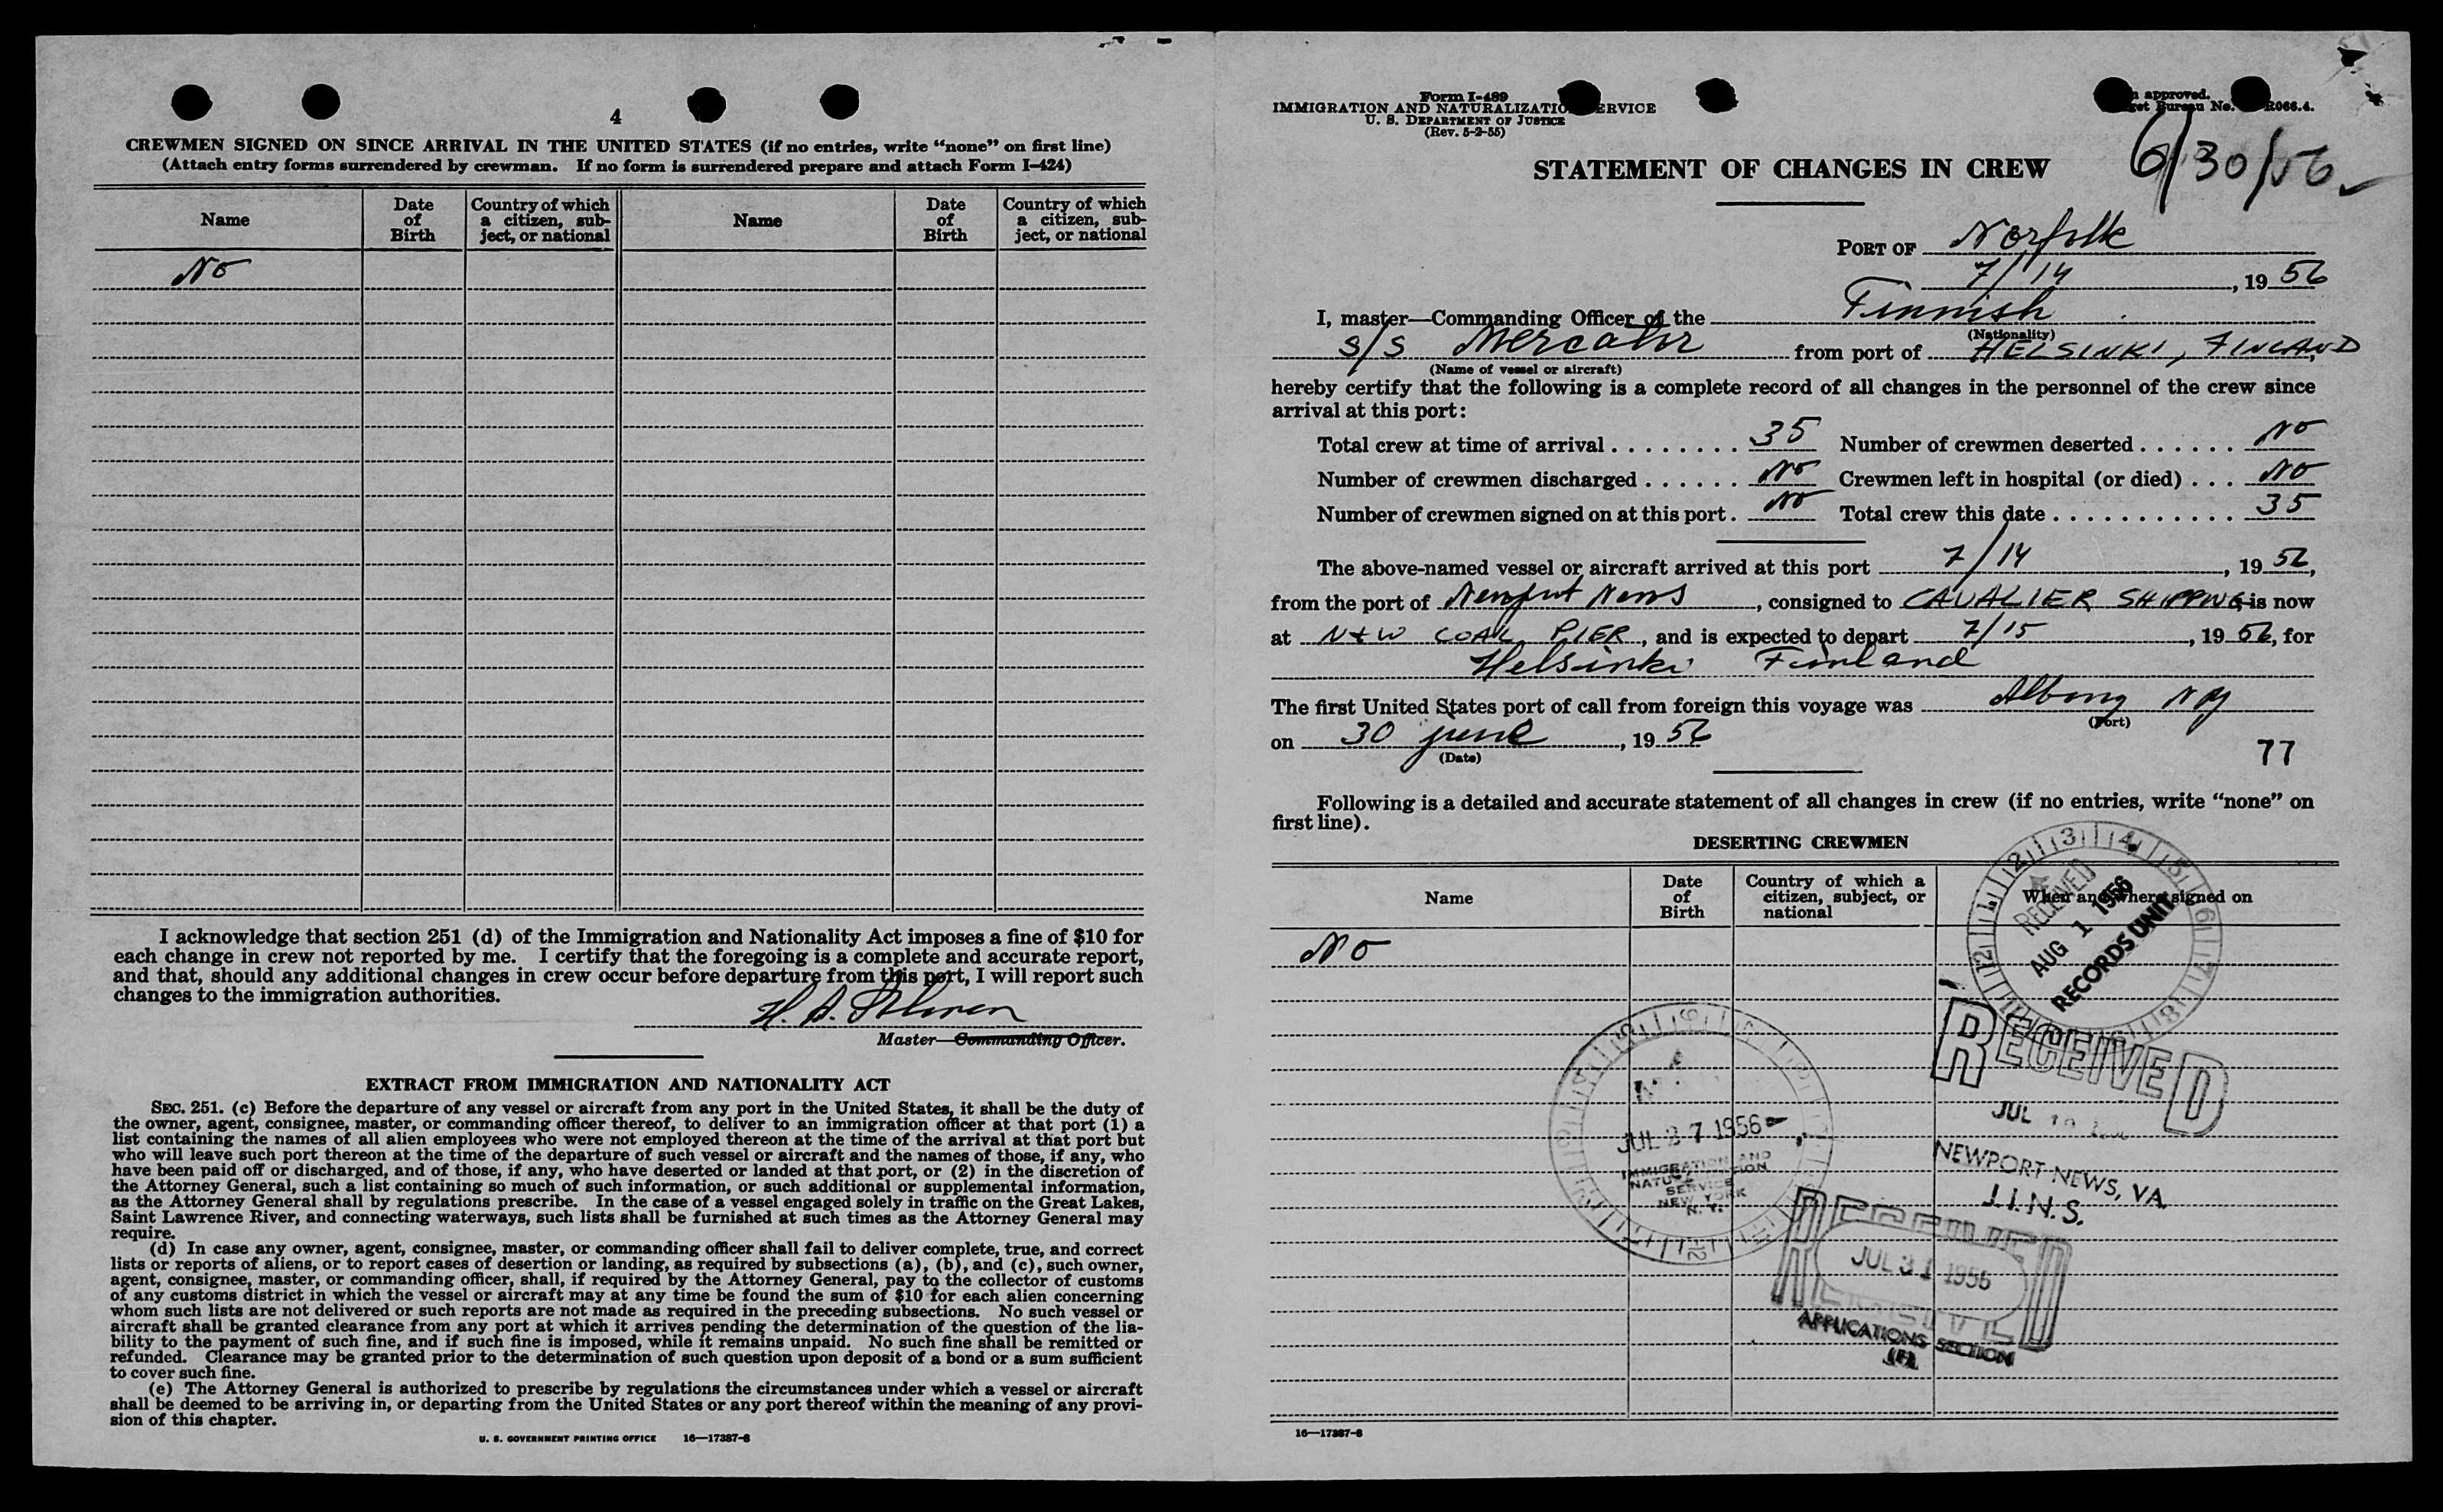 4
CREWMEN SIGNED ON SINCE ARRIVAL IN THE UNITED STATES (if no entries, write “none” on first line)
(Attach entry forms surrendered by crewman. If no form is surrendered prepare and attach Form I-424)
Name Date of Birth Country of which a citizen, subject, or national Name Date of Birth Country of which a citizen, subject, or national
No
I acknowledge that section 251 (d) of the Immigration and Nationality Act imposes a fine of $10 for
each change in crew not reported by me. I certify that the foregoing is a complete and accurate report,
and that, should any additional changes in crew occur before departure from this port, I will report such
changes to the immigration authorities.
H. A.
Master—Commanding Officer.
EXTRACT FROM IMMIGRATION AND NATIONALITY ACT
SEC. 251. (c) Before the departure of any vessel or aircraft from any port in the United States, it shall be the duty of
the owner, agent, consignee, master, or commanding officer thereof, to deliver to an immigration officer at that port (1) a
list containing the names of all alien employees who were not employed thereon at the time of the arrival at that port but
who will leave such port thereon at the time of the departure of such vessel or aircraft and the names of those, if any, who
have been paid off or discharged, and of those, if any, who have deserted or landed at that port, or (2) in the discretion of
the Attorney General, such a list containing so much of such information, or such additional or supplemental information,
as the Attorney General shall by regulations prescribe. In the case of a vessel engaged solely in traffic on the Great Lakes,
Saint Lawrence River, and connecting waterways, such lists shall be furnished at such times as the Attorney General may
require.
(d) In case any owner, agent, consignee, master, or commanding officer shall fail to deliver complete, true, and correct
lists or reports of aliens, or to report cases of desertion or landing, as required by subsections (a), (b), and (c), such owner,
agent, consignee, master, or commanding officer, shall, if required by the Attorney General, pay to the collector of customs
of any customs district in which the vessel or aircraft may at any time be found the sum of $10 for each alien concerning
whom such lists are not delivered or such reports are not made as required in the preceding subsections. No such vessel or
aircraft shall be granted clearance from any port at which it arrives pending the determination of the question of the lia-
bility to the payment of such fine, and if such fine is imposed, while it remains unpaid. No such fine shall be remitted or
refunded. Clearance may be granted prior to the determination of such question upon deposit of a bond or a sum sufficient
to cover such fine.
(e) The Attorney General is authorized to prescribe by regulations the circumstances under which a vessel or aircraft
shall be deemed to be arriving in, or departing from the United States or any port thereof within the meaning of any provi-
sion of this chapter.
U. S. GOVERNMENT PRINTING OFFICE 16—17387-8
Form I-489
IMMIGRATION AND NATURALIZATION SERVICE
U. S. DEPARTMENT OF JUSTICE
(Rev. 5-2-55)
approved.
Bureau No. R066.4.
6/30/56
STATEMENT OF CHANGES IN CREW
PORT OF Norfolk
7/14, 1956
I, master—Commanding Officer of the Finnish
(Nationality)
S/S Mercator from port of HELSINKI, FINLAND
(Name of vessel or aircraft)
hereby certify that the following is a complete record of all changes in the personnel of the crew since
arrival at this port:
Total crew at time of arrival 35 Number of crewmen deserted No
Number of crewmen discharged No Crewmen left in hospital (or died) No
Number of crewmen signed on at this port. No Total crew this date 35
The above-named vessel or aircraft arrived at this port 7/14, 1956,
from the port of Newport News, consigned to CAVALIER SHIPPING is now
at N+W COAL PIER, and is expected to depart 7/15, 1956, for
Helsinki Finland
The first United States port of call from foreign this voyage was Albany NY
(Port)
on 30 june, 1956
(Date)
77
Following is a detailed and accurate statement of all changes in crew (if no entries, write “none” on
first line).
DESERTING CREWMEN
Name Date of Birth Country of which a citizen, subject, or national When and where signed on
No
RECEIVED
AUG 1 1956
RECORDS UNIT
RECEIVED
JUL
NEWPORT NEWS, VA.
JUL 27 1956
IMMIGRATION AND
NATURALIZATION
SERVICE
NEW YORK
N. Y.
RECEIVED
JUL 31 1956
APPLICATIONS SECTION
16—17387-8